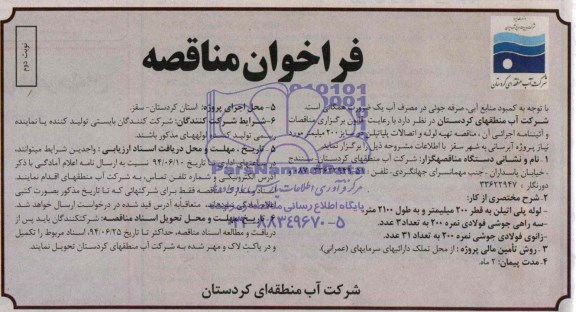 نوبت دوم
شرکت آب منطقه ای کردستان
فراخوان مناقصه
با توجه به کمبود منابع آبی، صرفه جوئی در مصرف آب یک ضرورت همگانی است.
شرکت آب منطقهای کردستان در نظر دارد با رعایت قانون برگزاری مناقصات
و آئیننامه اجرائی آن، مناقصه تهیه لوله و اتصالات پلیاتیلن سایز ۲۰۰ میلیمتر مورد
نیاز پروژه آبرسانی به شهر سقز با اطلاعات مشروحه ذیل را برگزار نماید.
۱- نام و نشانی دستگاه مناقصهگزار: شرکت آب منطقهای کردستان، سنندج
- خیابان پاسداران - جنب مهمانسرای جهانگردی - تلفن:
دورنگار: ۳۳۶۲۲۹۴۷
۲- شرح مختصری از کار:
- لوله پلی اتیلن به قطر ۲۰۰ میلیمتر و به طول ۲۱۰۰ متر
- سه راهی جوشی فولادی نمره ۲۰۰ به تعداد ۳ عدد.
- زانوی فولادی جوشی نمره ۲۰۰ به تعداد ۳۱ عدد.
۳- روش تأمین مالی پروژه: از محل تملک دارائیهای سرمایهای (عمرانی).
۴- مدت پیمان: ۲ ماه.
۵- محل اجرای پروژه: استان کردستان - سقز.
۶- شرایط شرکت کنندگان: شرکت کنندگان بایستی تولید کننده یا نماینده
تولید کننده لولههای مذکور باشند.
۵- تاریخ، مهلت و محل دریافت اسناد ارزیابی: واجدین شرایط میتوانند،
تاریخ ۹۴/۰۶/۱۰ نسبت به ارسال نامه اعلام آمادگی با ذکر
آدرس الکترونیکی و شماره تلفن تماس، به شرکت آب منطقهای اقدام نمایند.
اسناد مناقصه فقط برای شرکتهائی که تا تاریخ مذکور بصورت کتبی
اعلام آمادگی نمایند، متعاقباً به آدرس قید شده در درخواست ارسال خواهد شد.
۶- تاریخ، مهلت و محل تحویل اسناد مناقصه: شرکتکنندگان باید پس از
دریافت و مطالعه اسناد مناقصه، حداکثر تا تاریخ ۹۴/۰۶/۲۵، اسناد مربوط را تکمیل
و در پاکت لاک و مهر شده به شرکت آب منطقهای کردستان تحویل نمایند.
شرکت آب منطقهای کردستان
ParsNamad
پایگاه اطلاع رسانی
۰۲۱-۸۸۳۴۹۶۷۰-۵